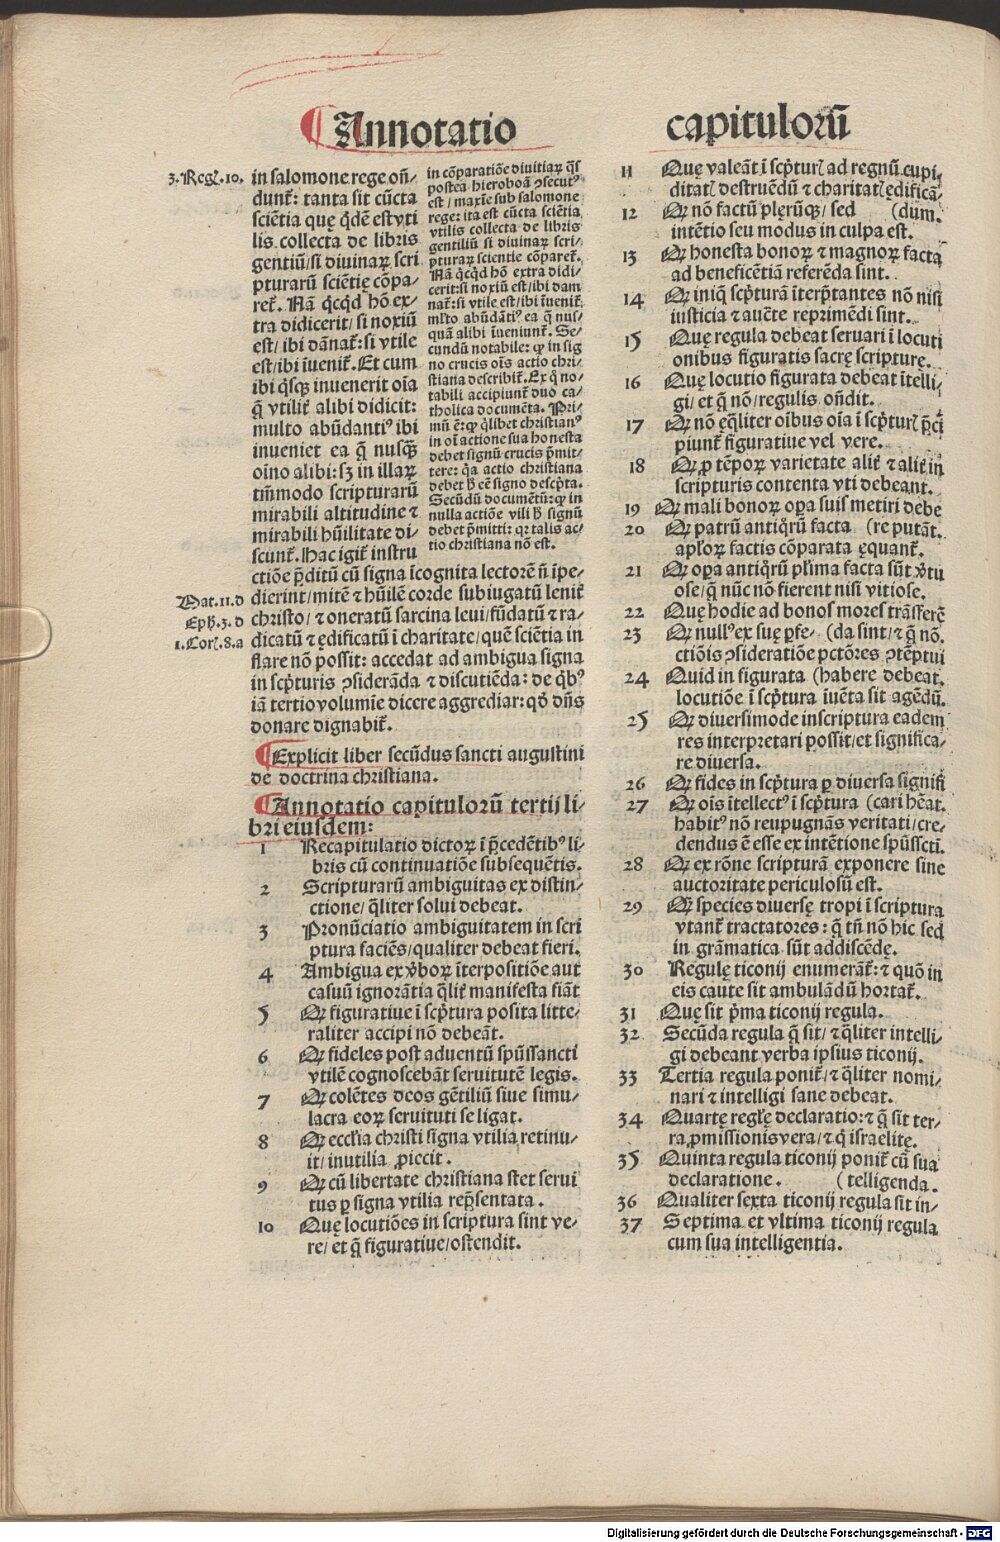 Annotatio capitulorũ
3. Reg. 10.
in salomone rege oñ/
dunt̃: tanta sit cũcta
sciẽtia quę q̃dẽ est vti
lis collecta de libris
gentiũ/ si diuinaꝝ scri
pturarũ sciẽtię cõpa/
ret̃. Nã q̃cq̃d hõ ex/
tra didicerit/ si noxiũ
est/ ibi dãnat̃: si vtile
est/ ibi ĩuenit̃. Et cum
ibi q̃sqꝫ inuenerit oĩa
q̃ vtilit̃ alibi didicit:
multo abũdantiꝰ ibi
inueniet ea q̃ nusq̃
oĩno alibi: sꝫ in illaꝝ
tm̃modo scripturarũ
mirabili altitudine ⁊
mirabili hũilitate di/
scunt̃. Hac igit̃ instru
ctiõe p̃ditũ cũ signa ĩcognita lectorẽ ñ ĩpe/
dierint/ mitẽ ⁊ hũilẽ corde subiugatũ lenit̃
christo/ ⁊ oneratũ sarcina leui/ fũdatũ ⁊ ra/
dicatũ ⁊ ędificatũ ĩ charitate/ quẽ sciẽtia in
flare nõ possit: accedat ad ambigua signa
in scp̃turis ꝯsiderãda ⁊ discutiẽda: de q̃bꝰ
iã tertio volumĩe dicere aggrediar: qđ dñs
donare dignabit̃.
Mat. 11. d
Eph. 3. d
1. Cor. 8. a
in cõparatiõe diuitiaꝝ q̃s
postea hieroboã ꝯsecutꝰ
est/ maxĩe sub salomone
rege: ita est cũcta sciẽtia
vtilis collecta de libris
gentiliũ si diuinaꝝ scri/
pturaꝝ scientie cõparet̃.
Nã q̃cq̃d hõ extra didi/
cerit: si noxiũ est/ ibi dam
nat̃: si vtile est/ ibi ĩuenit̃
ml̃to abũdãtiꝰ ea q̃ nus/
quã alibi ĩueniunt̃. Se/
cundũ notabile: ꝙ in sig
no crucis oĩs actio chri/
stiana describit̃. Ex q̃ no/
tabili accipiunt̃ duo ca/
tholica documẽta. Pri/
mũ ẽ: ꝙ q̃libet christianꝰ
in oĩ actione sua honesta
debet signũ crucis p̃mit/
tere: q̃a actio christiana
debet ħ cẽ signo descp̃ta.
Secũdũ documẽtũ: ꝙ in
nulla actiõe vili ħ signũ
debet p̃mitti: qꝛ talis ac/
tio christiana nõ est.
Explicit liber secũdus sancti augustini
de doctrina christiana.
Annotatio capitulorũ tertij li/
bri eiusdem:
1 Recapitulatio dictoꝝ ĩ p̃cedẽtibꝰ li/
bris cũ continuatiõe subsequẽtis.
2 Scripturarũ ambiguitas ex distin/
ctione/ q̃liter solui debeat.
3 Pronũciatio ambiguitatem in scri
ptura faciẽs/ qualiter debeat fieri.
4 Ambigua ex v̓boꝝ ĩterpositiõe aut
casuũ ignorãtia q̃lit̃ manifesta fiãt
5 Qꝛ figuratiue ĩ scp̃tura posita litte/
raliter accipi nõ debeãt.
6 Qꝛ fideles post aduentũ sp̃ũssancti
vtilẽ cognoscebãt seruitutẽ legis.
7 Qꝛ colẽtes deos gẽtiliũ siue simu/
lacra eoꝝ seruituti se ligat.
8 Qꝛ eccl̃ia christi signa vtilia retinu/
it/ inutilia ꝓiecit.
9 Qꝛ cũ libertate christiana stet serui
tus ꝑ signa vtilia rep̃sentata.
10 Quę locutiões in scriptura sint ve/
re/ et q̃ figuratiue/ ostendit.
11 Quę valeãt ĩ scp̃turꝭ ad regnũ cupi/
ditatꝭ destruẽdũ ⁊ charitatꝭ ędificã/
12 Qꝛ nõ factũ plęrũqꝫ/ sed (dum.
intẽtio seu modus in culpa est.
13 Qꝛ honesta bonoꝝ ⁊ magnoꝝ facta
ad beneficẽtiã referẽda sint.
14 Qꝛ iniq̃ scp̃turã ĩterp̃tantes nõ nisi
iusticia ⁊ aucte reprimẽdi sint.
15 Quę regula debeat seruari ĩ locuti
onibus figuratis sacrę scripturę.
16 Quę locutio figurata debeat ĩtelli/
gi/ et q̃ nõ/ regulis oñdit.
17 Qꝛ nõ ęq̃liter oĩbus oĩa ĩ scp̃turꝭ p̃ci
piunt̃ figuratiue vel vere.
18 Qꝛ ꝓ tẽpoꝝ varietate alit̃ ⁊ alit̃ in
scripturis contenta vti debeant.
19 Qꝛ mali bonoꝝ oꝑa suis metiri debe
20 Qꝛ patrũ antiq̃rũ facta (re putãt.
apl̃oꝝ factis cõparata ęquant̃.
21 Qꝛ oꝑa antiq̃rũ pl̃ima facta sũt v̓tu
ose/ q̃ nũc nõ fierent nisi vitiose.
22 Quę hodie ad bonos mores trãsferẽ
23 Qꝛ nullꝰ ex suę ꝑfe/ (da sint/ ⁊ q̃ nõ.
ctiõis ꝯsideratiõe pctõres ꝯtẽptui
24 Quid in figurata (habere debeat.
locutiõe ĩ scp̃tura ĩuẽta sit agẽdũ.
25 Qꝛ diuersimode in scriptura eadem
res interpretari possit/ et significa/
re diuersa.
26 Qꝛ fides in scp̃tura ꝑ diuersa signifi
27 Qꝛ oĩs ĩtellectꝰ ĩ scp̃tura (cari hẽat.
habitꝰ nõ reupugnãs veritati/ cre/
dendus ẽ esse ex intẽtione sp̃ũsscti.
28 Qꝛ ex rõne scripturã exponere sine
auctoritate periculosũ est.
29 Qꝛ species diuersę tropi ĩ scriptura
vtant̃ tractatores: q̃ tñ nõ hic sed
in grãmatica sũt addiscẽdę.
30 Regulę ticonij enumerãt̃: ⁊ quõ in
eis caute sit ambulãdũ hortat̃.
31 Quę sit p̃ma ticonij regula.
32 Secũda regula q̃ sit/ ⁊ q̃liter intelli/
gi debeant verba ipsius ticonij.
33 Tertia regula ponit̃/ ⁊ q̃liter nomi/
nari ⁊ intelligi sane debeat.
34 Quartę regl̃ę declaratio: ⁊ q̃ sit ter/
ra ꝓmissionis vera/ ⁊ q̃ israelitę.
35 Quinta regula ticonij ponit̃ cũ sua
declaratione. (telligenda.
36 Qualiter sexta ticonij regula sit in/
37 Septima et vltima ticonij regula
cum sua intelligentia.
Digitalisierung gefördert durch die Deutsche Forschungsgemeinschaft - DFG